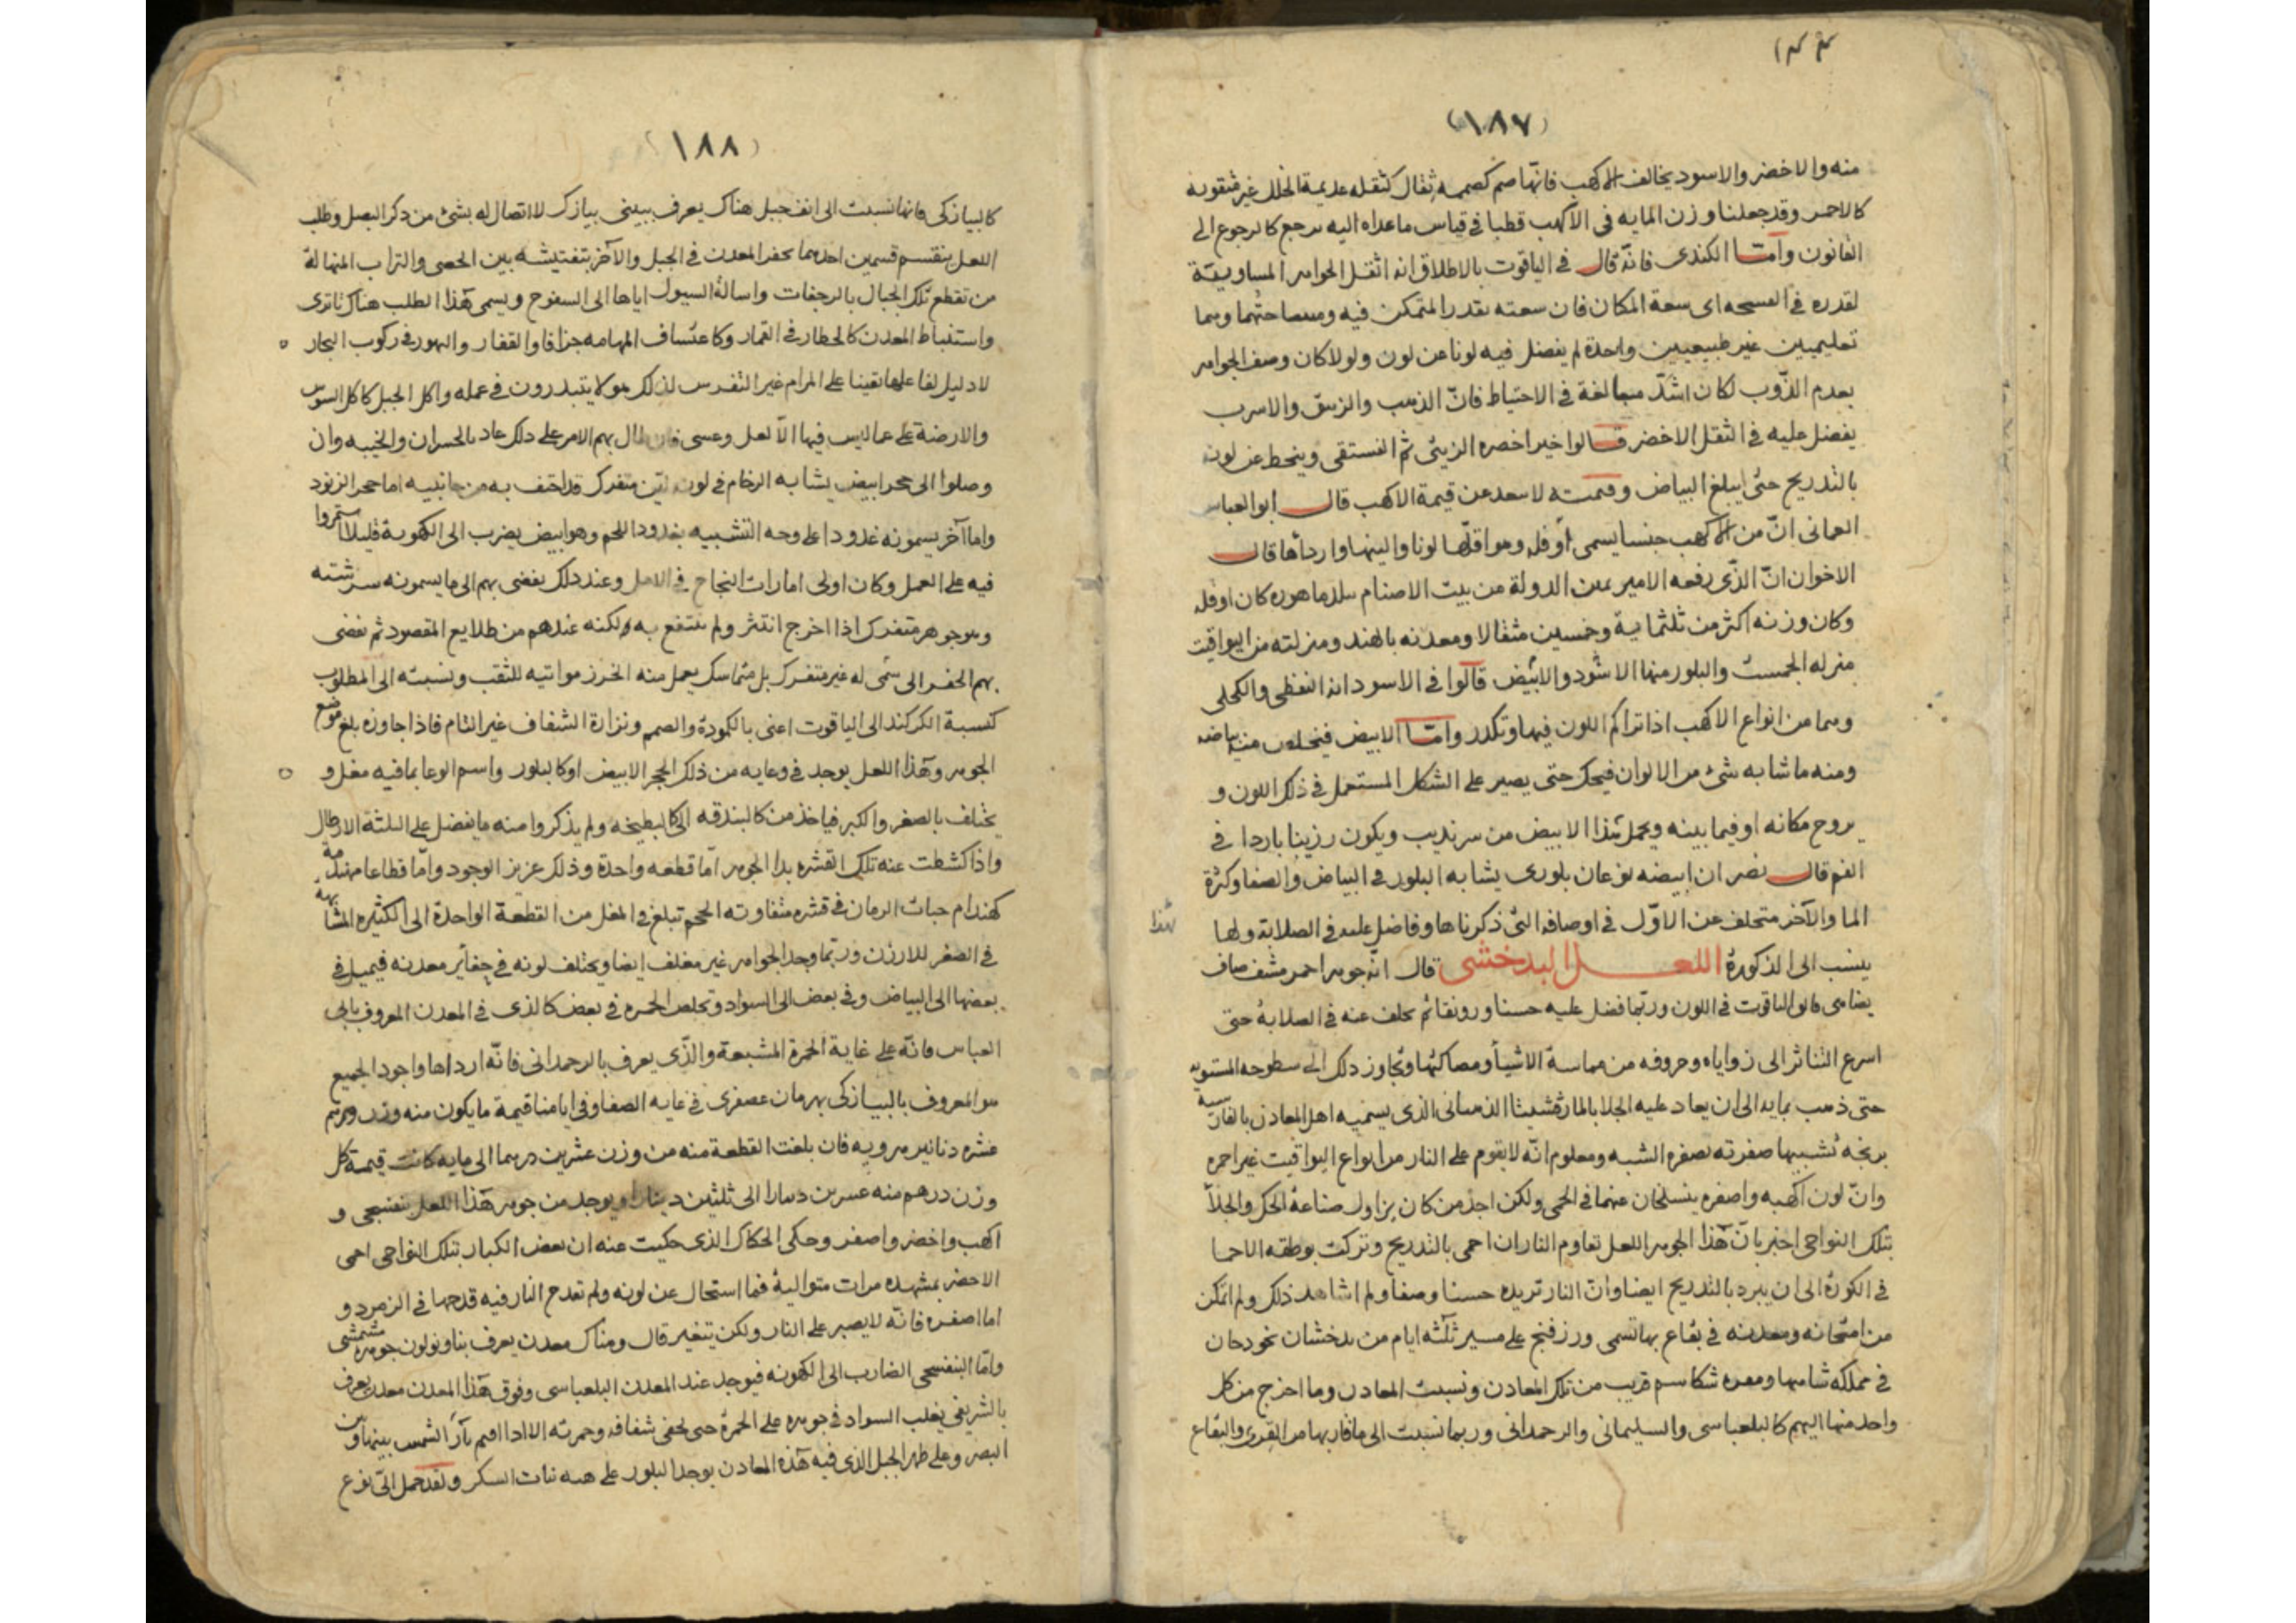 (١٨٧)
منه والاخضر والاسود يخالف الاكهب فانها صم كصممه ثقال كثقله عديمة الخلل غير مثقوبة
كالاحمر وقد جعلنا وزن المايه في الاكهب قطبا في قياس ما عداه اليه يرجع كالرجوع الى
القانون وامّا الكندى فانّه قال في الياقوت بالاطلاق انه اثقل الجواهر المساوية
لقدره في المسحه اى سعة المكان فان سعته بقدر المتمكن فيه ومساحتهما وهما
تعليميين غير طبيعيين واحدة لم يفضل فيه لونا عن لون ولولا كان وصف الجواهر
بعدم الذّوب لكان اشدّ مبالغة في الاحتياط فانّ الذهب والزيبق والاسرب
يفضل عليه في الثقل الاخضر قالوا خير اخضره الزيتى ثم الفستقى وينحط عن لون
بالتدريج حتى يبلغ البياض وقيمته لا سعد عن قيمة الاكهب قال ابو العباس
العمانى انّ من الاكهب جنسا يسمى اوفله وهو اقلّها لونا والينها وارداها قال
الاخوان انّ الذّى رفعه الامير يمين الدولة من بيت الاصنام ببلد ماهوره كان اوفله
وكان وزنه اكثر من ثلثماية وخمسين مثقالا ومعدنه بالهند ومنزلته من اليواقيت
منزله الجمست والبلور منها الاسود والابيض قالوا في الاسود انه النفطى والكحلى
وهما من انواع الاكهب اذا تراكم اللون فيها وتكدر وامّا الابيض فيخلص منه بياضه
ومنه ما شابه شئ من الالوان فيحك حتى يصير على الشكل المستعمل في ذلك اللون و
يروج مكانه او فيما بينه ويحمل هذا الابيض من سرنديب ويكون رزينا باردا في
الفم قال نصر ان ابيضه نوعان بلورى يشابه البلور في البياض والصفا وكثرة
الما والآخر متخلف عن الاوّل في اوصافه التى ذكرناها وفاضل عليه في الصلابة ولها
هذا
ينسب الى الذكورة اللعل البدخشى قال انّه جوهر احمر مشف صاف
يضاهى فايق الياقوت في اللون وربّما فضل عليه حسنا ورونقا ثم يخلف عنه في الصلابة حتى
اسرع التناثر الى زواياه وحروفه من مماسة الاشيا ومصاكتها وتجاوز ذلك الى سطوحه المستوية
حتى ذهب بمايه الى ان يعاد عليه الجلا بالمارقشيثا الذهبانى الذى يسميه اهل المعادن بالفارسية
برنجه تشبيها صفرته بصفره الشبه ومعلوم انّه لا يقوم على النار من انواع اليواقيت غير احمره
وانّ لون اكهبه واصفره ينسلخان عنهما في الحمى ولكن احد من كان يزاول صناعة الحك والجلآ
بتلك النواحى اخبر بانّ هذا الجوهر اللعل تقاوم النار ان احمى بالتدريج وتركت بوطقه الاحما
في الكورة الى ان يبرد بالتدريج ايضا وانّ النار تزيده حسنا وصفا ولم اشاهد ذلك ولم اتمكن
من امتحانه ومعدنه في بقاع بها تسمى ورزفنج على مسير ثلثه ايام من بدخشان نحو دحان
في مملكه شاهها ومعره شكاسم قريب من تلك المعادن ونسبت المعادن وما اخرج من كل
واحد منها اليهم كالبلعباسى والسليمانى والرحمدانى وربما نسبت الى ما قاربها من القرى والبقاع
(١٨٨)
كالبيازكى فانها نسبت الى انف جبل هناك يعرف ببينى بيازك لا اتصال له بشئ من ذكر البصل وطلب
اللعل ينقسم قسمين احدهما بحفر المعدن في الجبل والآخر بتفتيشه بين الحصى والتراب المنهالة
من تقطع تلك الجبال بالرجفات واسالة السيول اياها الى السفوح ويسمى هذا الطلب هناك ناترى
واستنباط المعدن كالخطار في القمار وكاعتساف المهامه جزافا والقفار والتهور في ركوب البحار
لا دليل لفاعلها يقينا على المرام غير التفرس لذلك هولا يتبدرون في عمله واكل الجبل كاكل السوس
والارضة على عما ليس فيها الّا لعل وعسى فان طال بهم الامر على ذلك عاد بالخسران والخيبه وان
وصلوا الى حجر ابيض يشابه الرخام في لونه لين متفرك قد احتف به من جانبيه اما حجر الزنود
واما آخر يسمونه غدودا على وجه التشبيه بغدود اللحم وهو ابيض يضرب الى الكهوبة قليلا استمروا
فيه على العمل وكان اولى امارات النجاح في الامل وعند ذلك يفضى بهم الى ما يسمونه سرشته
وهو جوهر متفرك اذا اخرج انتثر ولم ينتفع به ولكنه عندهم من طلايع المقصود ثم يفضى
بهم الحفر الى شئ له غير متفرك بل متماسك يعمل منه الخرز مواتيه للثقب ونسبته الى المطلوب
كنسبة الكركند الى الياقوت اعنى بالكمودة والصمم ونزارة الشفاف غير التام فاذا جاوزه بلغ موضع
الجوهر وهذا اللعل يوجد في وعايه من ذلك الحجر الابيض او كالبلور واسم الوعا بما فيه مغل و
يختلف بالصغر والكبر فياخذ من كالبندقه الى كالبطيخه ولم يذكروا منه ما يفضل على الثلثة الارطال
واذا كشطت عنه تلك القشره بدا الجوهر امّا قطعه واحدة وذلك عزيز الوجود وامّا قطاعا مهندمة
كهندام حبات الرمان في قشره متفاوته الحجم تبلغ في المغل من القطعة الواحدة الى الكثيره المشابهة
في الصغر للارزن وربّما وجد الجواهر غير مغلف ايضا ويختلف لونه في حفاير معدنه فيميل في
بعضها الى البياض وفي بعض الى السواد وتخلص الحمره في بعض كالذى في المعدن المعروف بابى
العباس فانّه على غاية الحمرة المشبعة والذّى يعرف بالرحمدانى فانّه ارداها واجود الجميع
هو المعروف بالبيازكى بهرمان عصفرى في غايه الصفا وفي ايامنا قيمة ما يكون منه وزن درهم
عشره دنانير هرويه فان بلغت القطعة منه من وزن عشرين درهما الى مايه كانت قيمة كل
وزن درهم منه عشرين دينارا الى ثلثين دينارا ويوجد من جوهر هذا اللعل بنفسجى و
اكهب واخضر واصفر وحكى الحكاك الذى حكيت عنه ان بعض الكبار بتلك النواحى احمى
الاخضر بمشهده مرات متوالية فما استحال عن لونه ولم تقدح النار فيه قدحها في الزمرد و
اما اصفره فانّه لا يصبر على النار ولكن يتغير قال وهناك معدن يعرف بناونولون جوهره مشمشى
وامّا البنفسجى الضارب الى الكهوبه فيوجد عند المعدن البلعباسى وفوق هذا المعدن معدن يعرف
بالشريفى يغلب السواد في جوهره على الحمرة حتى تخفى شفافه وحمرته الا اذا اقيم بازآ الشمس بينها وبين
البصر وعلى ظهر الجبل الذى فيه هذه المعادن يوجد البلور على هيه نبات السكر ولقد حمل الىّ نوع